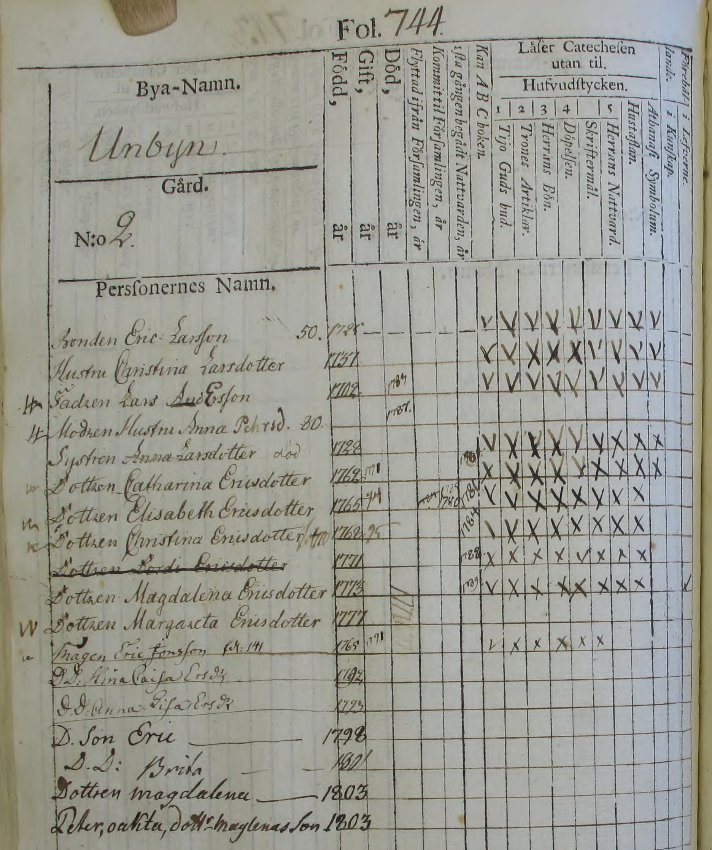 Fol. 744
Bya-Namn.
Unbyn.
Gård.
N:o 2.
Persſonernes Namn.
Född, år
Gift, år
Död, år
Flyttad ifrån Förſamlingen, år
Kommit til Förſamlingen, år
1ſta gången begådt Nattvarden, år
Kan A B C boken.
Läſer Catecheſen
utan til.
Hufvudſtycken.
1 2 3 4 5
Tijo Guds bud.
Trones Artiklar.
Herrans Bön.
Döpelſen.
Skriftermål.
Herrans Nattvard.
Huſtaflan.
Athanaſii Symbolum.
i Kunſkap.
i Lefverne
Bonden Eric Larſſon 50.
Huſtru Chriſtina Larsdotter 1737
Fadren Lars Andersſon 1702
Modren Huſtru Anna Pehrsd. 80. 1787.
Syſtren Anna Larsdotter död 1728
Dottren Catharina Ericsdotter 1762 1791
Dottren Eliſabeth Ericsdotter 1765 94
Dottren Chriſtina Ericsdotter 1768 95
Dottren Ericsdotter 1771
Dottren Magdalena Ericsdotter 1773
Dottren Margareta Ericsdotter 1777
Mågen Eric Jonsſon fol. 141 1765 1791
D.D: Stina Caiſa Ersdr 1792
D.D: Anna Liſa Ersdr 1793
D. Son Eric 1798
D. D: Brita 1801
Dottren magdalena 1803
Peter, oäkta, dottr maglenas Son 1803